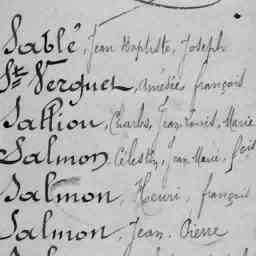 Sablé, Jean Baptiste, Joseph
St Verguet, Amédée, françois
Salliou, Charles, Jean Louis, Marie
Salmon, Célestin, Jean Marie, fçis
Salmon, Henri, françois
Salmon, Jean, Pierre